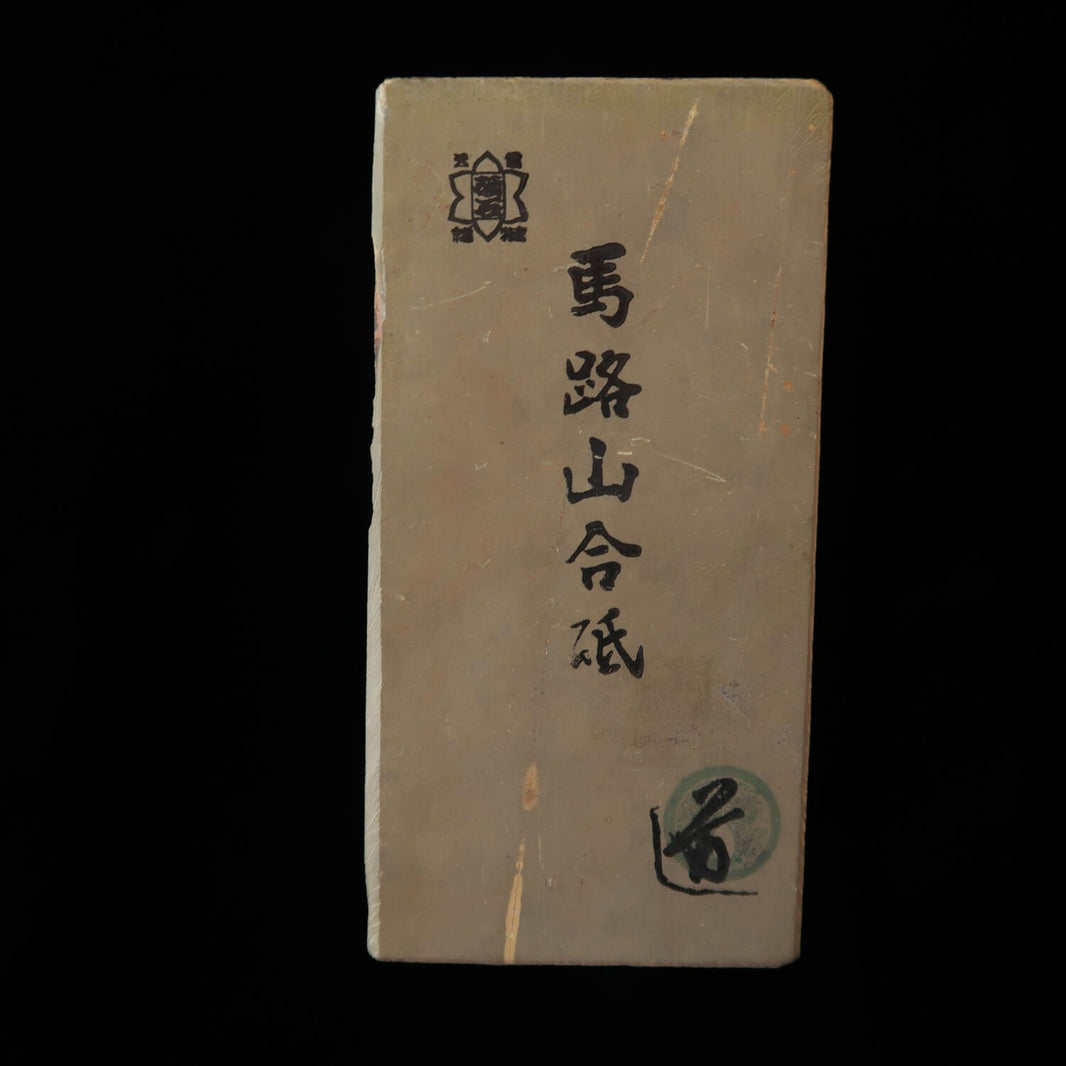 馬路山合砥
道